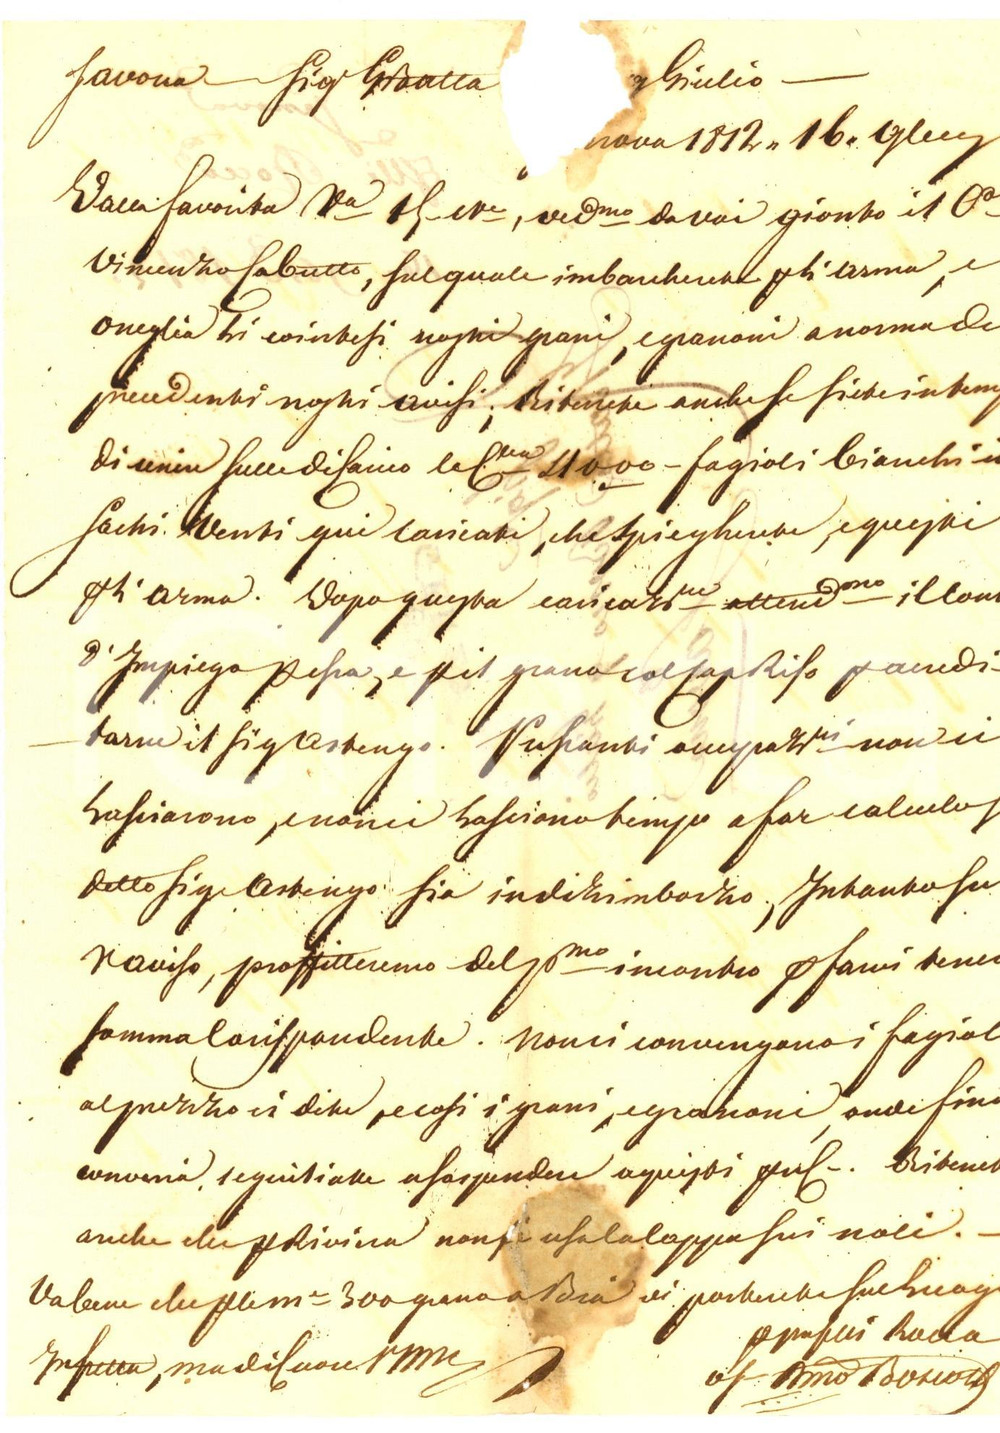 Savona — Sig.r Gio Batta Giulio —
nova 1812. 16. 9bre
Dalla favorita Vra 15. cte, vedmo da voi gionto il Co
Vincenzo Sabatto, sul quale imbarcherete p li arma, e
Oneglia li cointesi nostri grani, e granoni a norma de
precedenti nostri avisi; Riterrete anche se siete in temp
di unire sulle di carico le 4000 - fagioli bianchi i
sachi venti qui caricati, che spiegherete, e questi
p li arma. Dopo questa caricazne attendmo il Con
d'Impiego p essa, e p il grano col Cap Riso p acredi-
tarne il Sig Astengo. Pressanti occupazni non ci
lasciarono, e non ci lasciano tempo a far calcolo
detto Sigr Astengo sia indi rimborzo, Intanto su
Vaviso, proffitteremo del pmo incontro p farvi tener
somma Corispondente. Non ci convengono i fagiol
al prezzo ci dite, e così i grani, e granoni, onde fino
converrà, seguitiate a sospendere aquisti p n/C-. Riterret
anche che p Riviera non si usa la Cappa sui noli. —
Va bene che p le me 300 grano a Bria vi porterete sul luog
p profili Rocca
In fretta, ma di Cuore